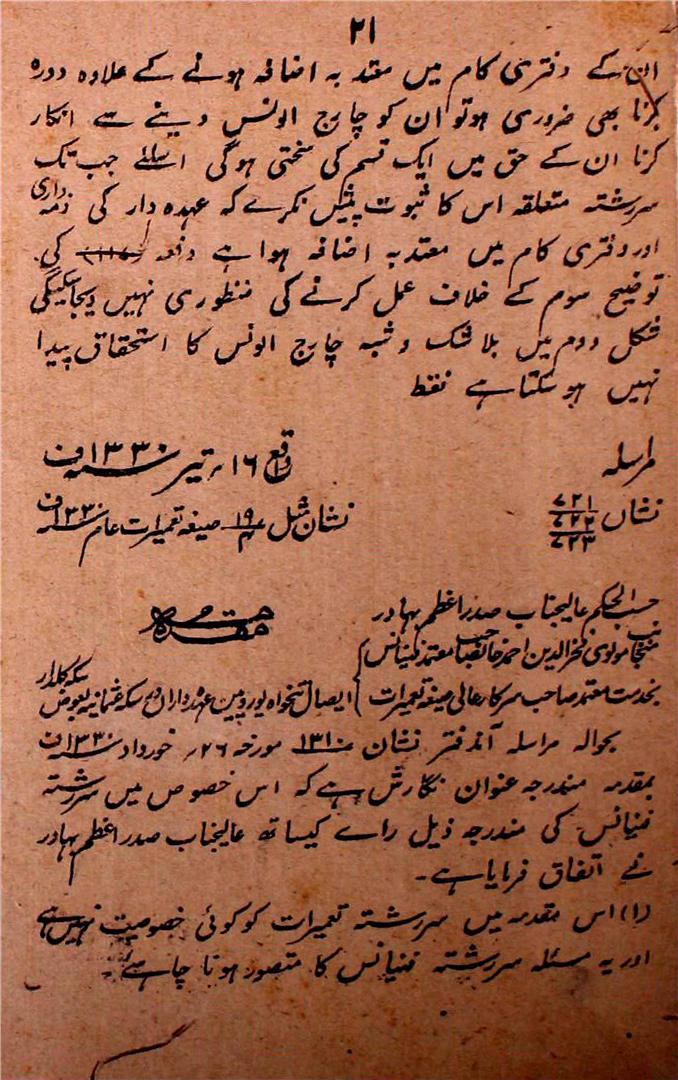 ۲۱
ان کے دفتری کام میں معتد بہ اضافہ ہونے کے علاوہ دورہ
کرنا بھی ضروری ہو تو ان کو چارج الونس دینے سے انکار
کرنا ان کے حق میں ایک قسم کی سختی ہوگی اسلئے جب تک
سررشتہ متعلقہ اس کا ثبوت پیش نکرے کہ عہدہ دار کی ذمہ داری
اور دفتری کام میں معتدبہ اضافہ ہوا ہے دفعہ کی
توضیح سوم کے خلاف عمل کرنے کی منظوری نہیں دیجائیگی
شکل دوم میں بلا شک و شبہ چارج الونس کا استحقاق پیدا
نہیں ہو سکتا ہے فقط
مراسلہ واقع ۱۶؍ تیر ۱۳۳۰ ف
نشان ۷۲۱ ۷۲۲ ۷۲۳ نشان مثل ۱۹/۳ صیغہ تعمیرات عام ۱۳۳۰ ف
حسب الحکم عالیجناب صدر اعظم بہادر
مقدمہ
منجانب مولوی فخرالدین احمد خانصاحب معتمد فینانس
بخدمت معتمد صاحب سرکار عالی صیغہ تعمیرات
ایصال تنخواہ یوروپین عہدہ داران سکہ عثمانیہ بعوض سکہ کلدار
بحوالہ مراسلہ آندفتر نشان ۱۳۱۰ مورخہ ۲۶؍ خورداد ۱۳۳۰ ف
بمقدمہ مندرجہ عنوان نگارش ہے کہ اس خصوص میں سررشتہ
فینانس کی مندرجہ ذیل رائے کیساتھ عالیجناب صدر اعظم بہادر
نے اتفاق فرمایا ہے۔
(۱) اس مقدمہ میں سررشتہ تعمیرات کو کوئی خصوصیت نہیں ہے
اور یہ مسئلہ سررشتہ فینانس کا متصور ہونا چاہئے۔